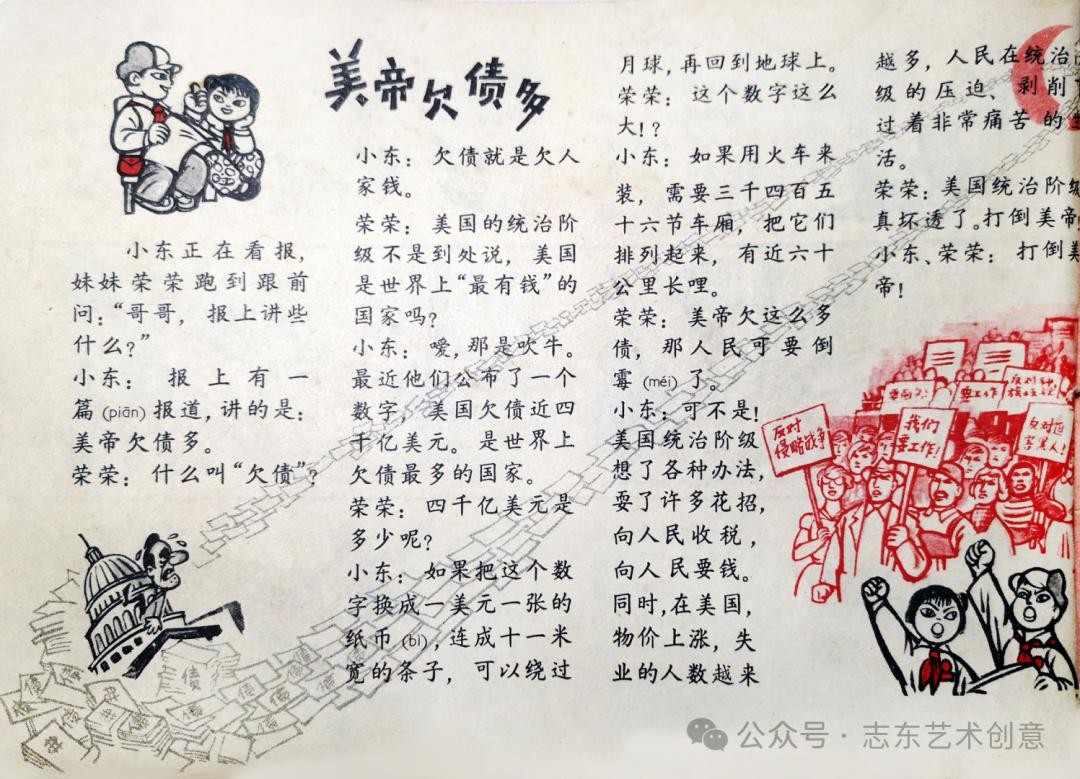 美帝欠债多
小东正在看报，
妹妹荣荣跑到跟前
问：“哥哥，报上讲些
什么？”
小东：报上有一
篇(piān)报道，讲的是：
美帝欠债多。
荣荣：什么叫“欠债”？
小东：欠债就是欠人
家钱。
荣荣：美国的统治阶
级不是到处说，美国
是世界上“最有钱”的
国家吗？
小东：嗳，那是吹牛。
最近他们公布了一个
数字，美国欠债近四
千亿美元。是世界上
欠债最多的国家。
荣荣：四千亿美元是
多少呢？
小东：如果把这个数
字换成一美元一张的
纸币(bì)，连成十一米
宽的条子，可以绕过
月球，再回到地球上。
荣荣：这个数字这么
大！？
小东：如果用火车来
装，需要三千四百五
十六节车厢，把它们
排列起来，有近六十
公里长哩。
荣荣：美帝欠这么多
债，那人民可要倒
霉(méi)了。
小东：可不是！
美国统治阶级
想了各种办法，
耍了许多花招，
向人民收税，
向人民要钱。
同时，在美国，
物价上涨，失
业的人数越来
越多，人民在统治
级的压迫、剥削
过着非常痛苦的
活。
荣荣：美国统治阶级
真坏透了。打倒美帝
小东、荣荣：打倒美
帝！
要工作
反对
侵略战争
我们
要工作！
反对
害黑人！
债
债
债
债
公众号·志东艺术创意